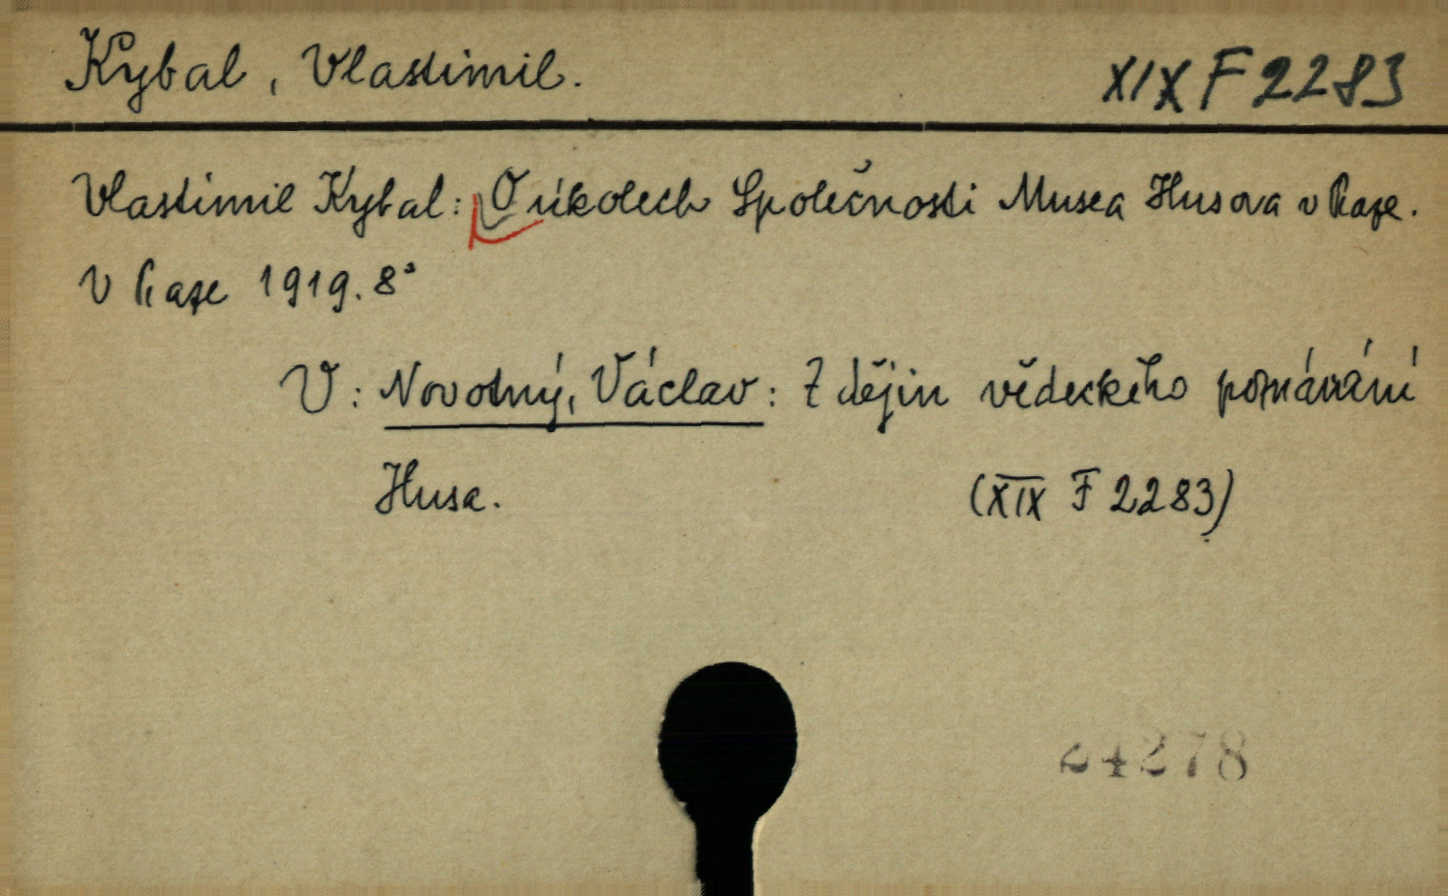 Kybal, Vlastimil.
XIX F 2283
Vlastimil Kybal: O úkolech Společnosti Musea Husova v Praze.
V Praze 1919. 8°
V: Novotný, Václav: Z dějin vědeckého poznávání
Husa. (XIX F 2283)
24278